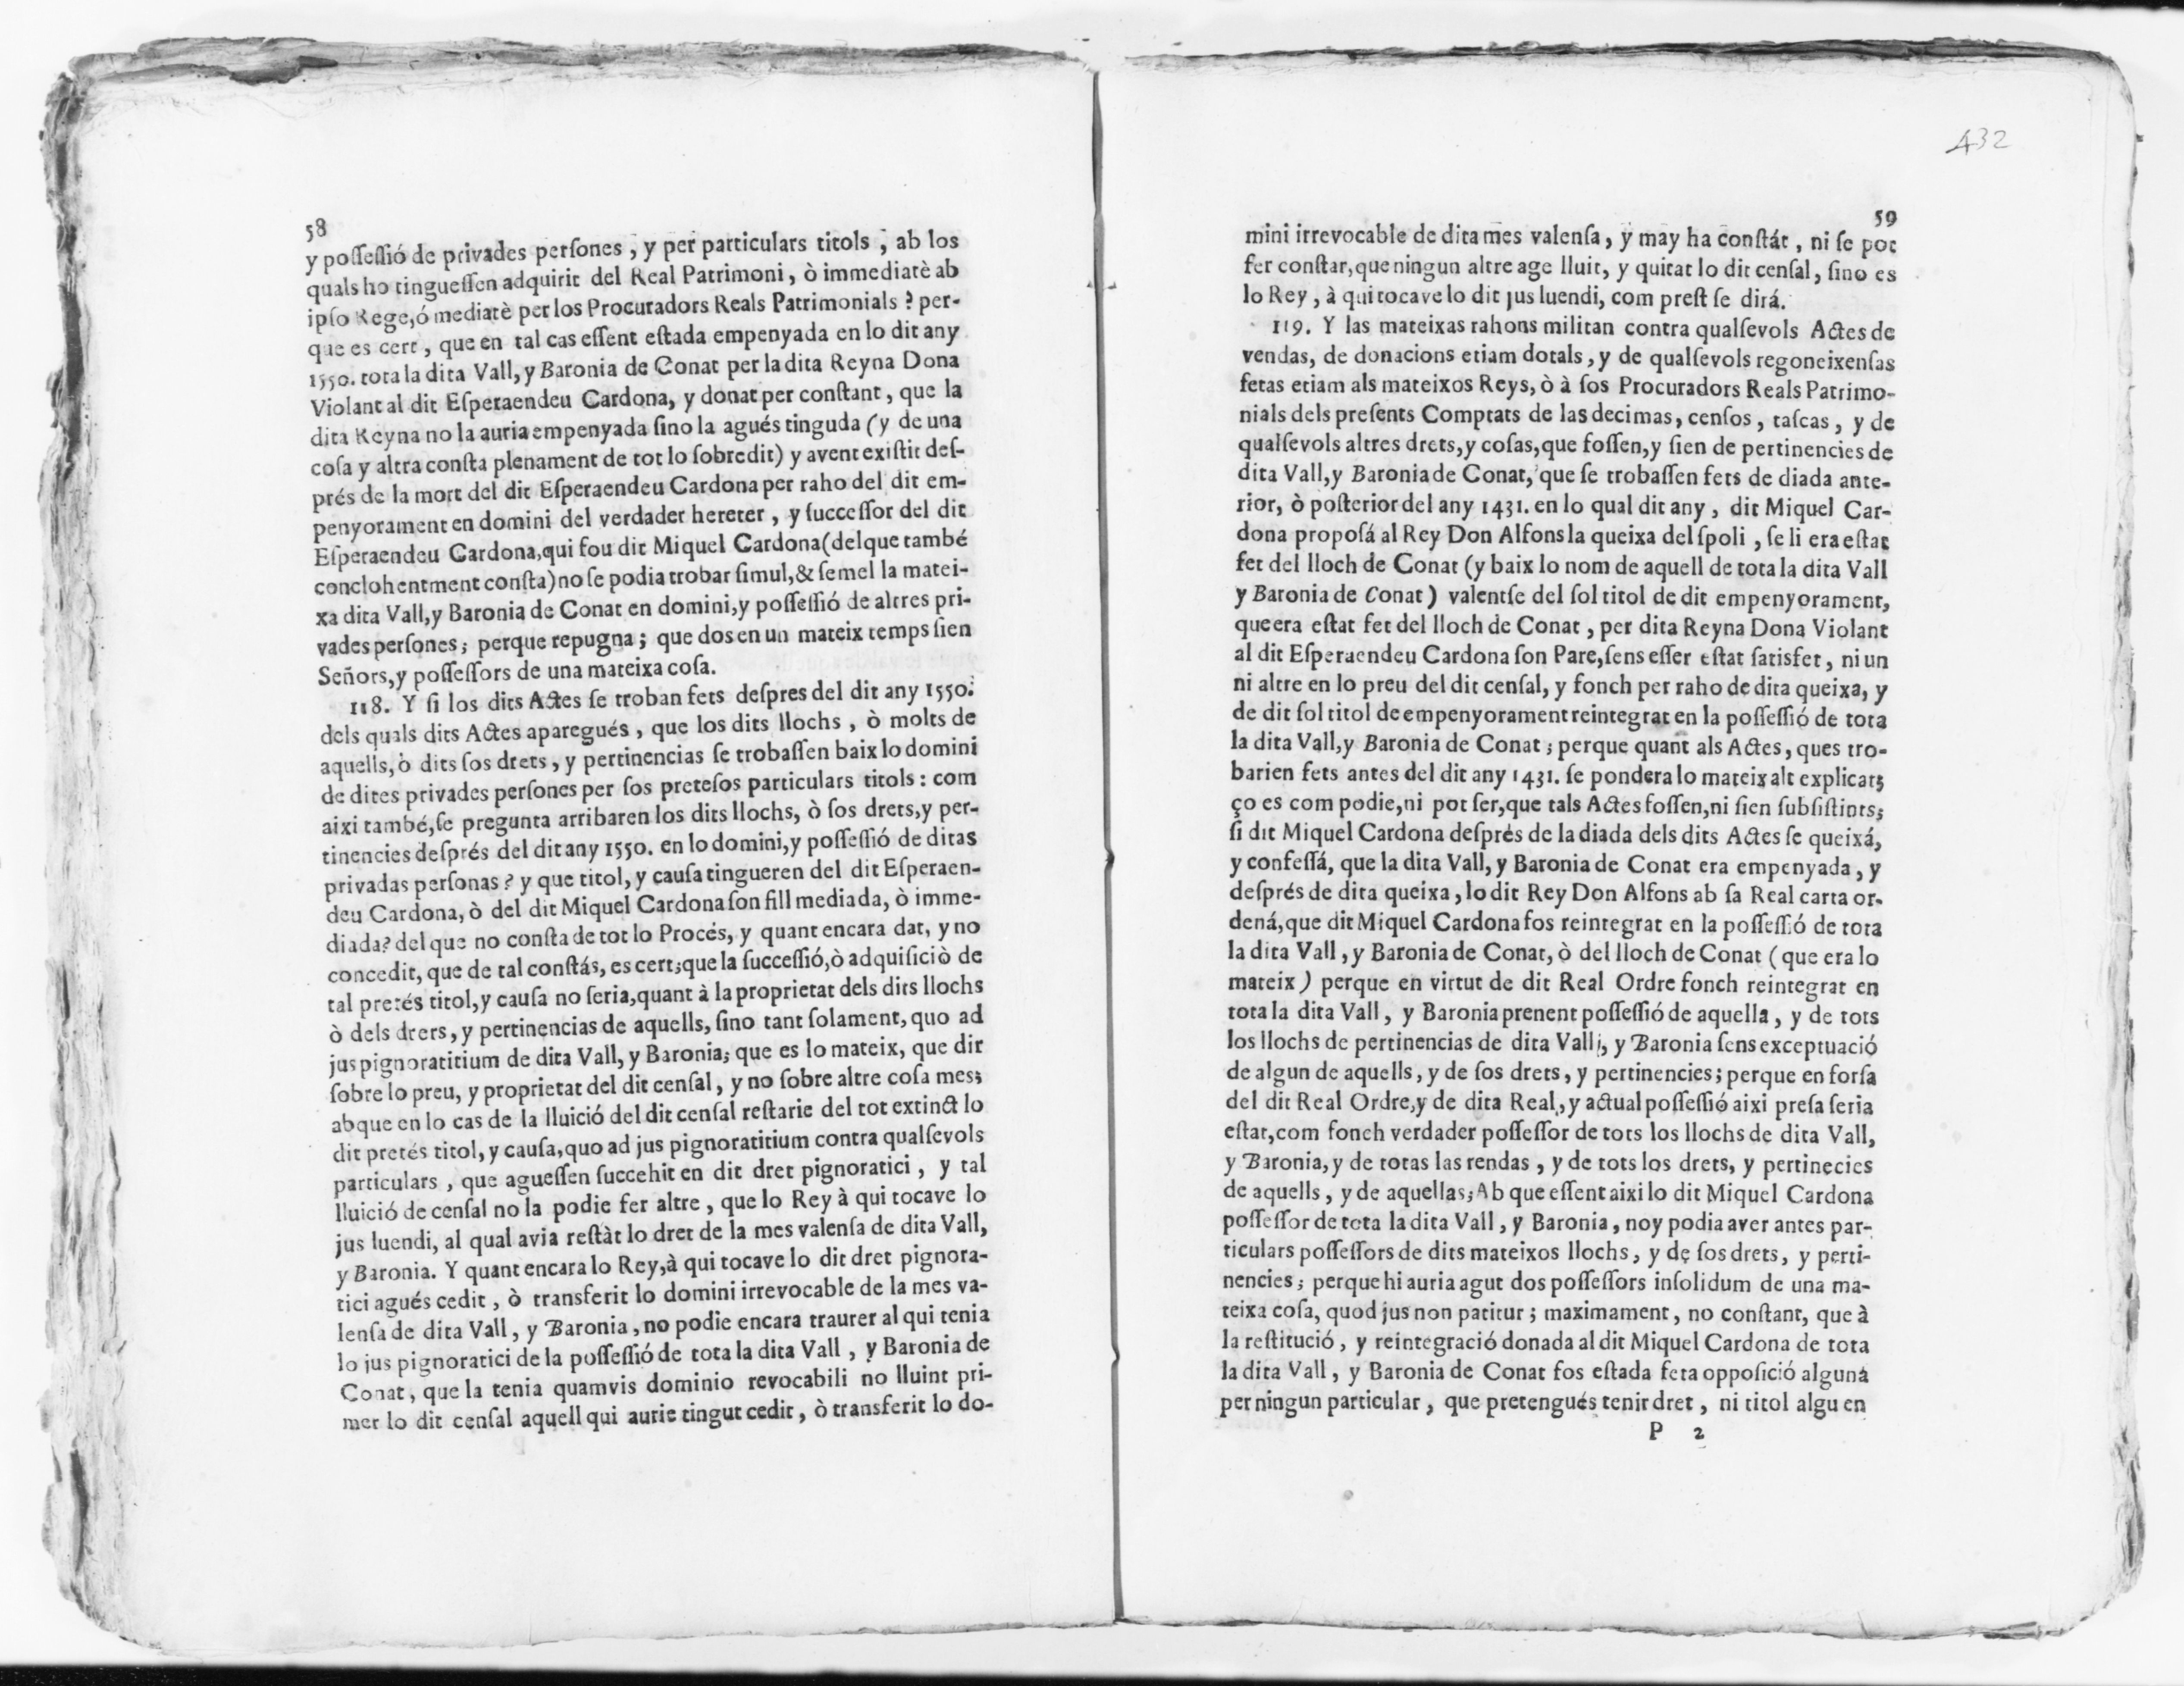 58
y possessió de privades persones, y per particulars titols, ab los
quals ho tinguessen adquirit del Real Patrimoni, ò immediatè ab
ipso Rege, ó mediatè per los Procuradors Reals Patrimonials? per-
que es cert, que en tal cas essent estada empenyada en lo dit any
1550. tota la dita Vall, y Baronia de Conat per la dita Reyna Dona
Violant al dit Esperaendeu Cardona, y donat per constant, que la
dita Reyna no la auria empenyada sino la agués tinguda (y de una
cosa y altra consta plenament de tot lo sobredit) y avent existit des-
prés de la mort del dit Esperaendeu Cardona per raho del dit em-
penyorament en domini del verdader hereter, y successor del dit
Esperaendeu Cardona, qui fou dit Miquel Cardona (del que també
conclohentment consta) no se podia trobar simul, & semel la matei-
xa dita Vall, y Baronia de Conat en domini, y possessió de altres pri-
vades persones; perque repugna; que dos en un mateix temps sien
Señors, y possessors de una mateixa cosa.
118. Y si los dits Actes se troban fets despres del dit any 1550.
dels quals dits Actes aparegués, que los dits llochs, ò molts de
aquells, ò dits sos drets, y pertinencias se trobassen baix lo domini
de dites privades persones per sos pretesos particulars titols: com
aixi també, se pregunta arribaren los dits llochs, ò sos drets, y per-
tinencies després del dit any 1550. en lo domini, y possessió de ditas
privadas personas? y que titol, y causa tingueren del dit Esperaen-
deu Cardona, ò del dit Miquel Cardona son fill mediada, ò imme-
diada? del que no consta de tot lo Procés, y quant encara dat, y no
concedit, que de tal constás, es cert; que la successió, ò adquisiciò de
tal pretés titol, y causa no seria, quant à la proprietat dels dits llochs
ò dels drets, y pertinencias de aquells, sino tant solament, quo ad
jus pignoratitium de dita Vall, y Baronia; que es lo mateix, que dir
sobre lo preu, y proprietat del dit censal, y no sobre altre cosa mes;
ab que en lo cas de la lluició del dit censal restarie del tot extinct lo
dit pretés titol, y causa, quo ad jus pignoratitium contra qualsevols
particulars, que aguessen succehit en dit dret pignoratici, y tal
lluició de censal no la podie fer altre, que lo Rey à qui tocave lo
jus luendi, al qual avia restàt lo dret de la mes valensa de dita Vall,
y Baronia. Y quant encara lo Rey, à qui tocave lo dit dret pignora-
tici agués cedit, ò transferit lo domini irrevocable de la mes va-
lensa de dita Vall, y Baronia, no podie encara traurer al qui tenia
lo jus pignoratici de la possessió de tota la dita Vall, y Baronia de
Conat, que la tenia quamvis dominio revocabili no lluint pri-
mer lo dit censal aquell qui aurie tingut cedit, ò transferit lo do-
432
59
mini irrevocable de dita mes valensa, y may ha constát, ni se pot
fer constar, que ningun altre age lluit, y quitat lo dit censal, sino es
lo Rey, à qui tocave lo dit jus luendi, com prest se dirá.
119. Y las mateixas rahons militan contra qualsevols Actes de
vendas, de donacions etiam dotals, y de qualsevols regoneixensas
fetas etiam als mateixos Reys, ò à sos Procuradors Reals Patrimo-
nials dels presents Comptats de las decimas, censos, tascas, y de
qualsevols altres drets, y cosas, que fossen, y sien de pertinencies de
dita Vall, y Baronia de Conat, que se trobassen fets de diada ante-
rior, ò posterior del any 1431. en lo qual dit any, dit Miquel Car-
dona proposá al Rey Don Alfons la queixa del spoli, se li era estat
fet del lloch de Conat (y baix lo nom de aquell de tota la dita Vall
y Baronia de Conat) valentse del sol titol de dit empenyorament,
que era estat fet del lloch de Conat, per dita Reyna Dona Violant
al dit Esperaendeu Cardona son Pare, sens esser estat satisfet, ni un
ni altre en lo preu del dit censal, y fonch per raho de dita queixa, y
de dit sol titol de empenyorament reintegrat en la possessió de tota
la dita Vall, y Baronia de Conat; perque quant als Actes, ques tro-
barien fets antes del dit any 1431. se pondera lo mateix alt explicat;
ço es com podie, ni pot ser, que tals Actes fossen, ni sien subsistints;
si dit Miquel Cardona després de la diada dels dits Actes se queixá,
y confessá, que la dita Vall, y Baronia de Conat era empenyada, y
després de dita queixa, lo dit Rey Don Alfons ab sa Real carta or-
dená, que dit Miquel Cardona fos reintegrat en la possessió de tota
la dita Vall, y Baronia de Conat, ò del lloch de Conat (que era lo
mateix) perque en virtut de dit Real Ordre fonch reintegrat en
tota la dita Vall, y Baronia prenent possessió de aquella, y de tots
los llochs de pertinencias de dita Vall, y Baronia sens exceptuació
de algun de aquells, y de sos drets, y pertinencies; perque en forsa
del dit Real Ordre, y de dita Real, y actual possessió aixi presa seria
estat, com fonch verdader possessor de tots los llochs de dita Vall,
y Baronia, y de totas las rendas, y de tots los drets, y pertinecies
de aquells, y de aquellas; Ab que essent aixi lo dit Miquel Cardona
possessor de tota la dita Vall, y Baronia, noy podia aver antes par-
ticulars possessors de dits mateixos llochs, y de sos drets, y perti-
nencies; perque hi auria agut dos possessors insolidum de una ma-
teixa cosa, quod jus non patitur; maximament, no constant, que à
la restitució, y reintegració donada al dit Miquel Cardona de tota
la dita Vall, y Baronia de Conat fos estada feta opposició alguna
per ningun particular, que pretengués tenir dret, ni titol algu en
P 2